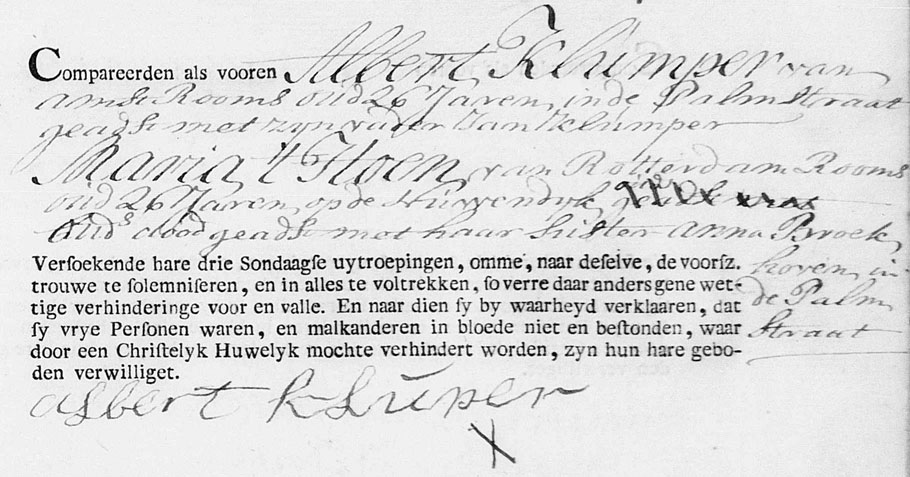 Compareerden als vooren Albert Klumper van
amst Rooms oud 26 Jaren, in de Palm Straat
geads met zyn vader Jan Klumper
Maria 't Hoen, van Rotterdam Rooms
oud 26 Jaren, op de Nuwendyk,
Ouds dood geads met haar suster Anna Broek
hoven, in
de Palm
Straat
Versoekende hare drie Sondaagse uytroepingen, omme, naar deselve, de voorsz.
trouwe te solemniseren, en in alles te voltrekken, so verre daar anders gene wet-
tige verhinderinge voor en valle. En naar dien sy by waarheyd verklaaren, dat
sy vrye Personen waren, en malkanderen in bloede niet en bestonden, waar
door een Christelyk Huwelyk mochte verhindert worden, zyn hun hare gebo-
den verwilliget.
albert kluper
X